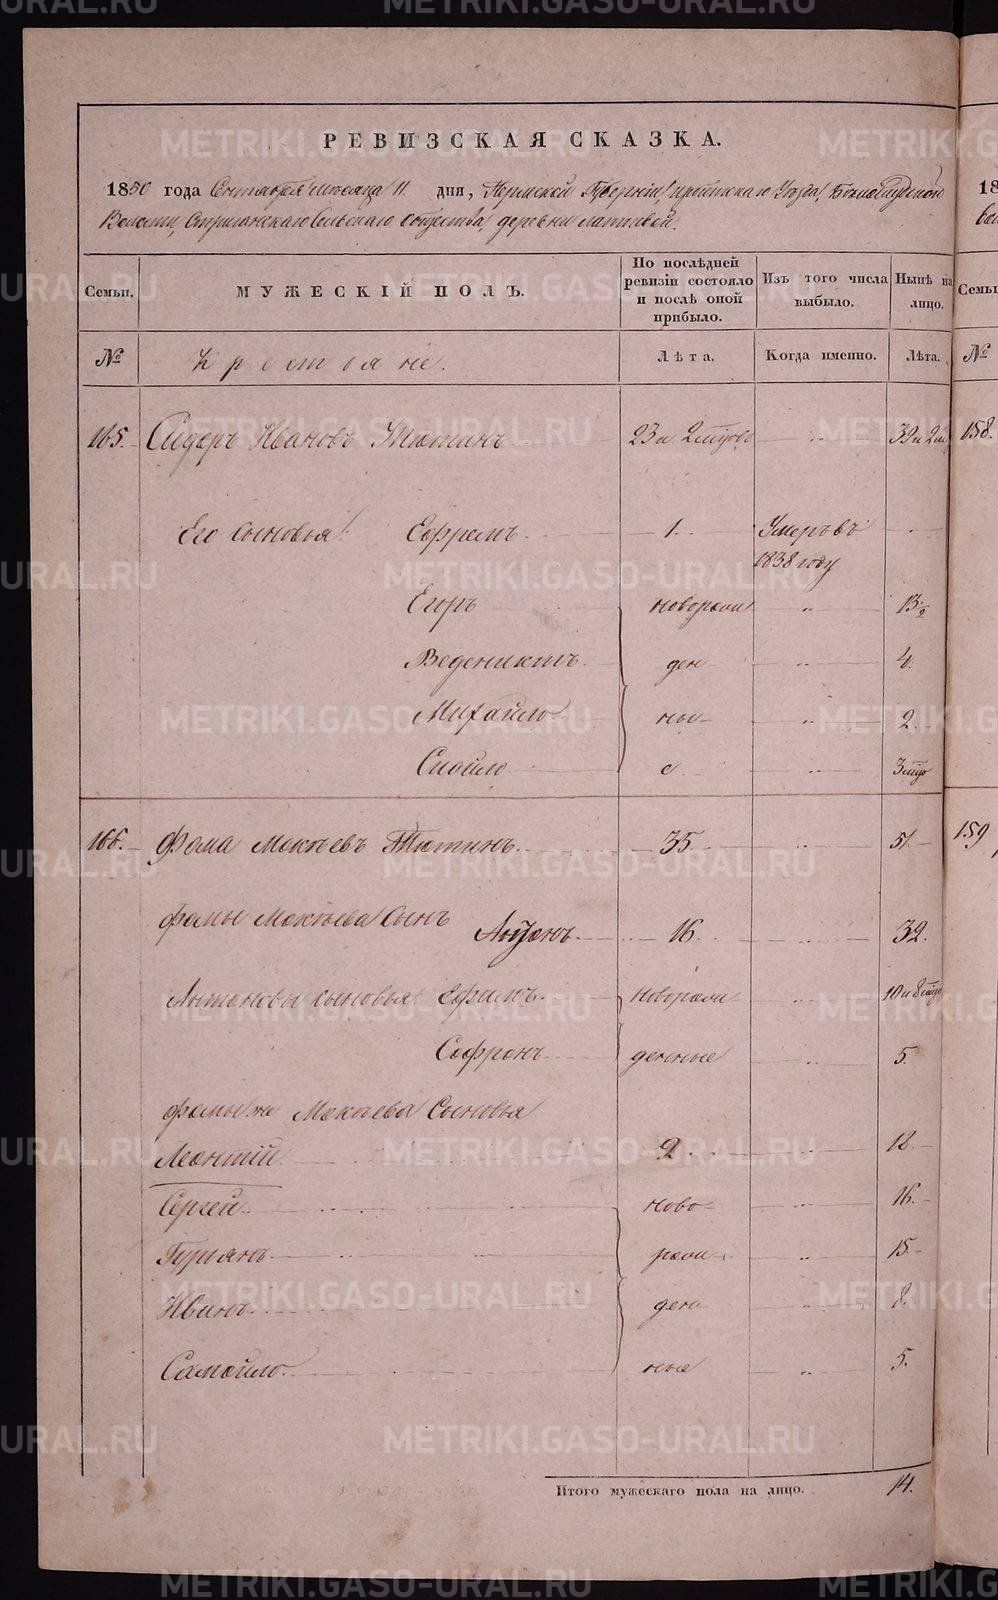 РЕВИЗСКАЯ СКАЗКА.
1850 года Сентября месяца 11 дня, Пермской Губернии Ирбитскаго Уезда, Белослудской
Волости, Стриганскаго Сельскаго Общества, деревни
Семьи. МУЖЕСКІЙ ПОЛЪ. По послѣдней ревизіи состояло и послѣ оной прибыло. Изъ того числа выбыло. Нынѣ на лицо.
№ Крестьяне. Лѣта. Когда именно. Лѣта. №
165. Сидоръ Ивановъ Тютинъ 23 и 2 " 39 и 2 158.
Его сыновья: Ефремъ 1. Умеръ въ
1838 году
Егоръ новорож " 13 1/2
Веденихтъ ден " 4.
Михайло ные " 2.
Смойло е " 3
166. Фома Мокѣевъ Тютинъ 35 " 51. 159
Фомы Мокѣева сынъ
Антонъ 16. " 32.
Антоновы сыновья: Ефимъ новорож " 10 и 8
Софронъ денные " 5.
Фомы же Мокѣева сыновья
Леонтій 2. " 18.
Сергей ново " 16.
Гурьянъ рож " 15.
Иванъ ден " 8.
Самойло ные " 5.
Итого мужескаго пола на лицо. 14.
METRIKI.GASO-URAL.RU